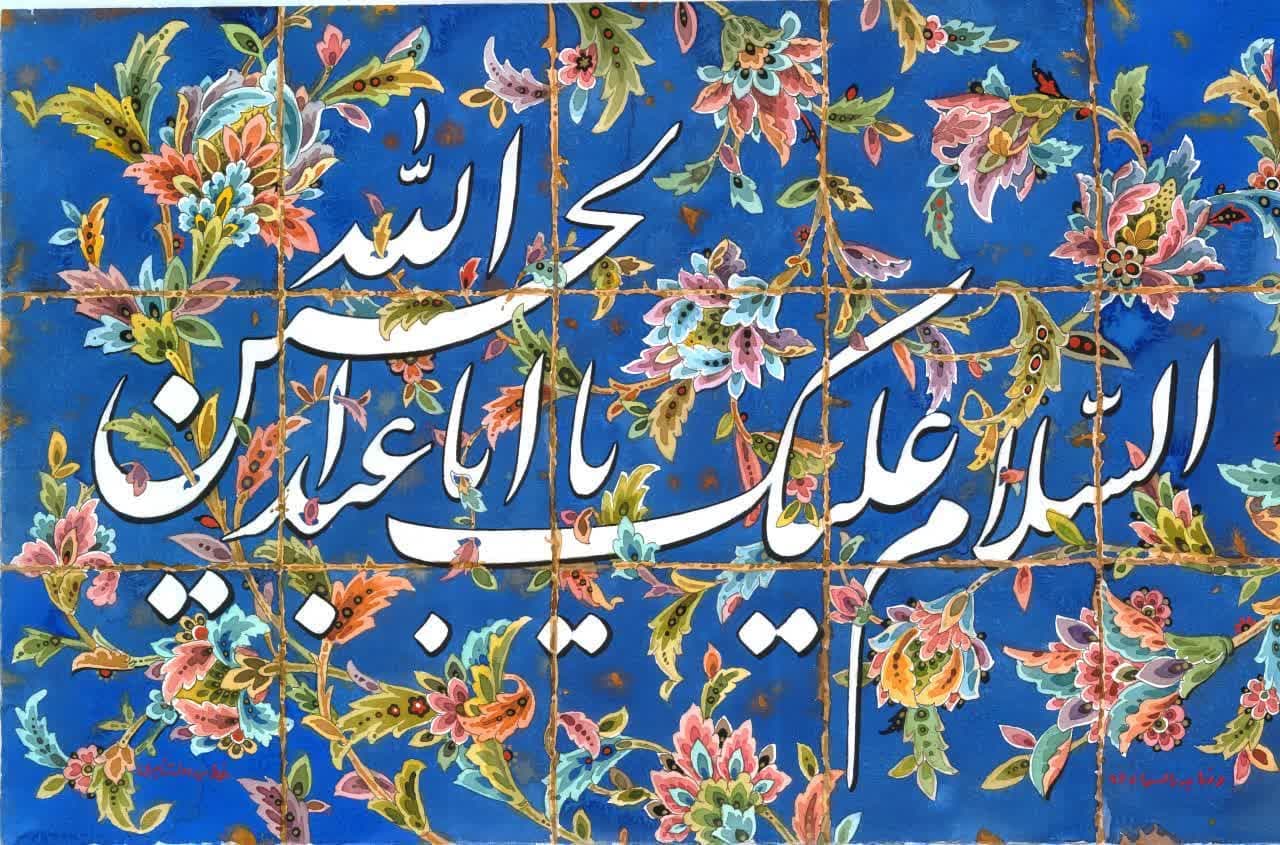 السّلام علیک یا ابا عبد الله الحسین